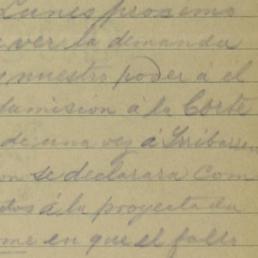 Lunes proximo
ver la demanda
nuestro poder á el
admisión á la Corte
de una vez á Irribarre
on se declarara com
tos á la proyectada
me en que el fallo